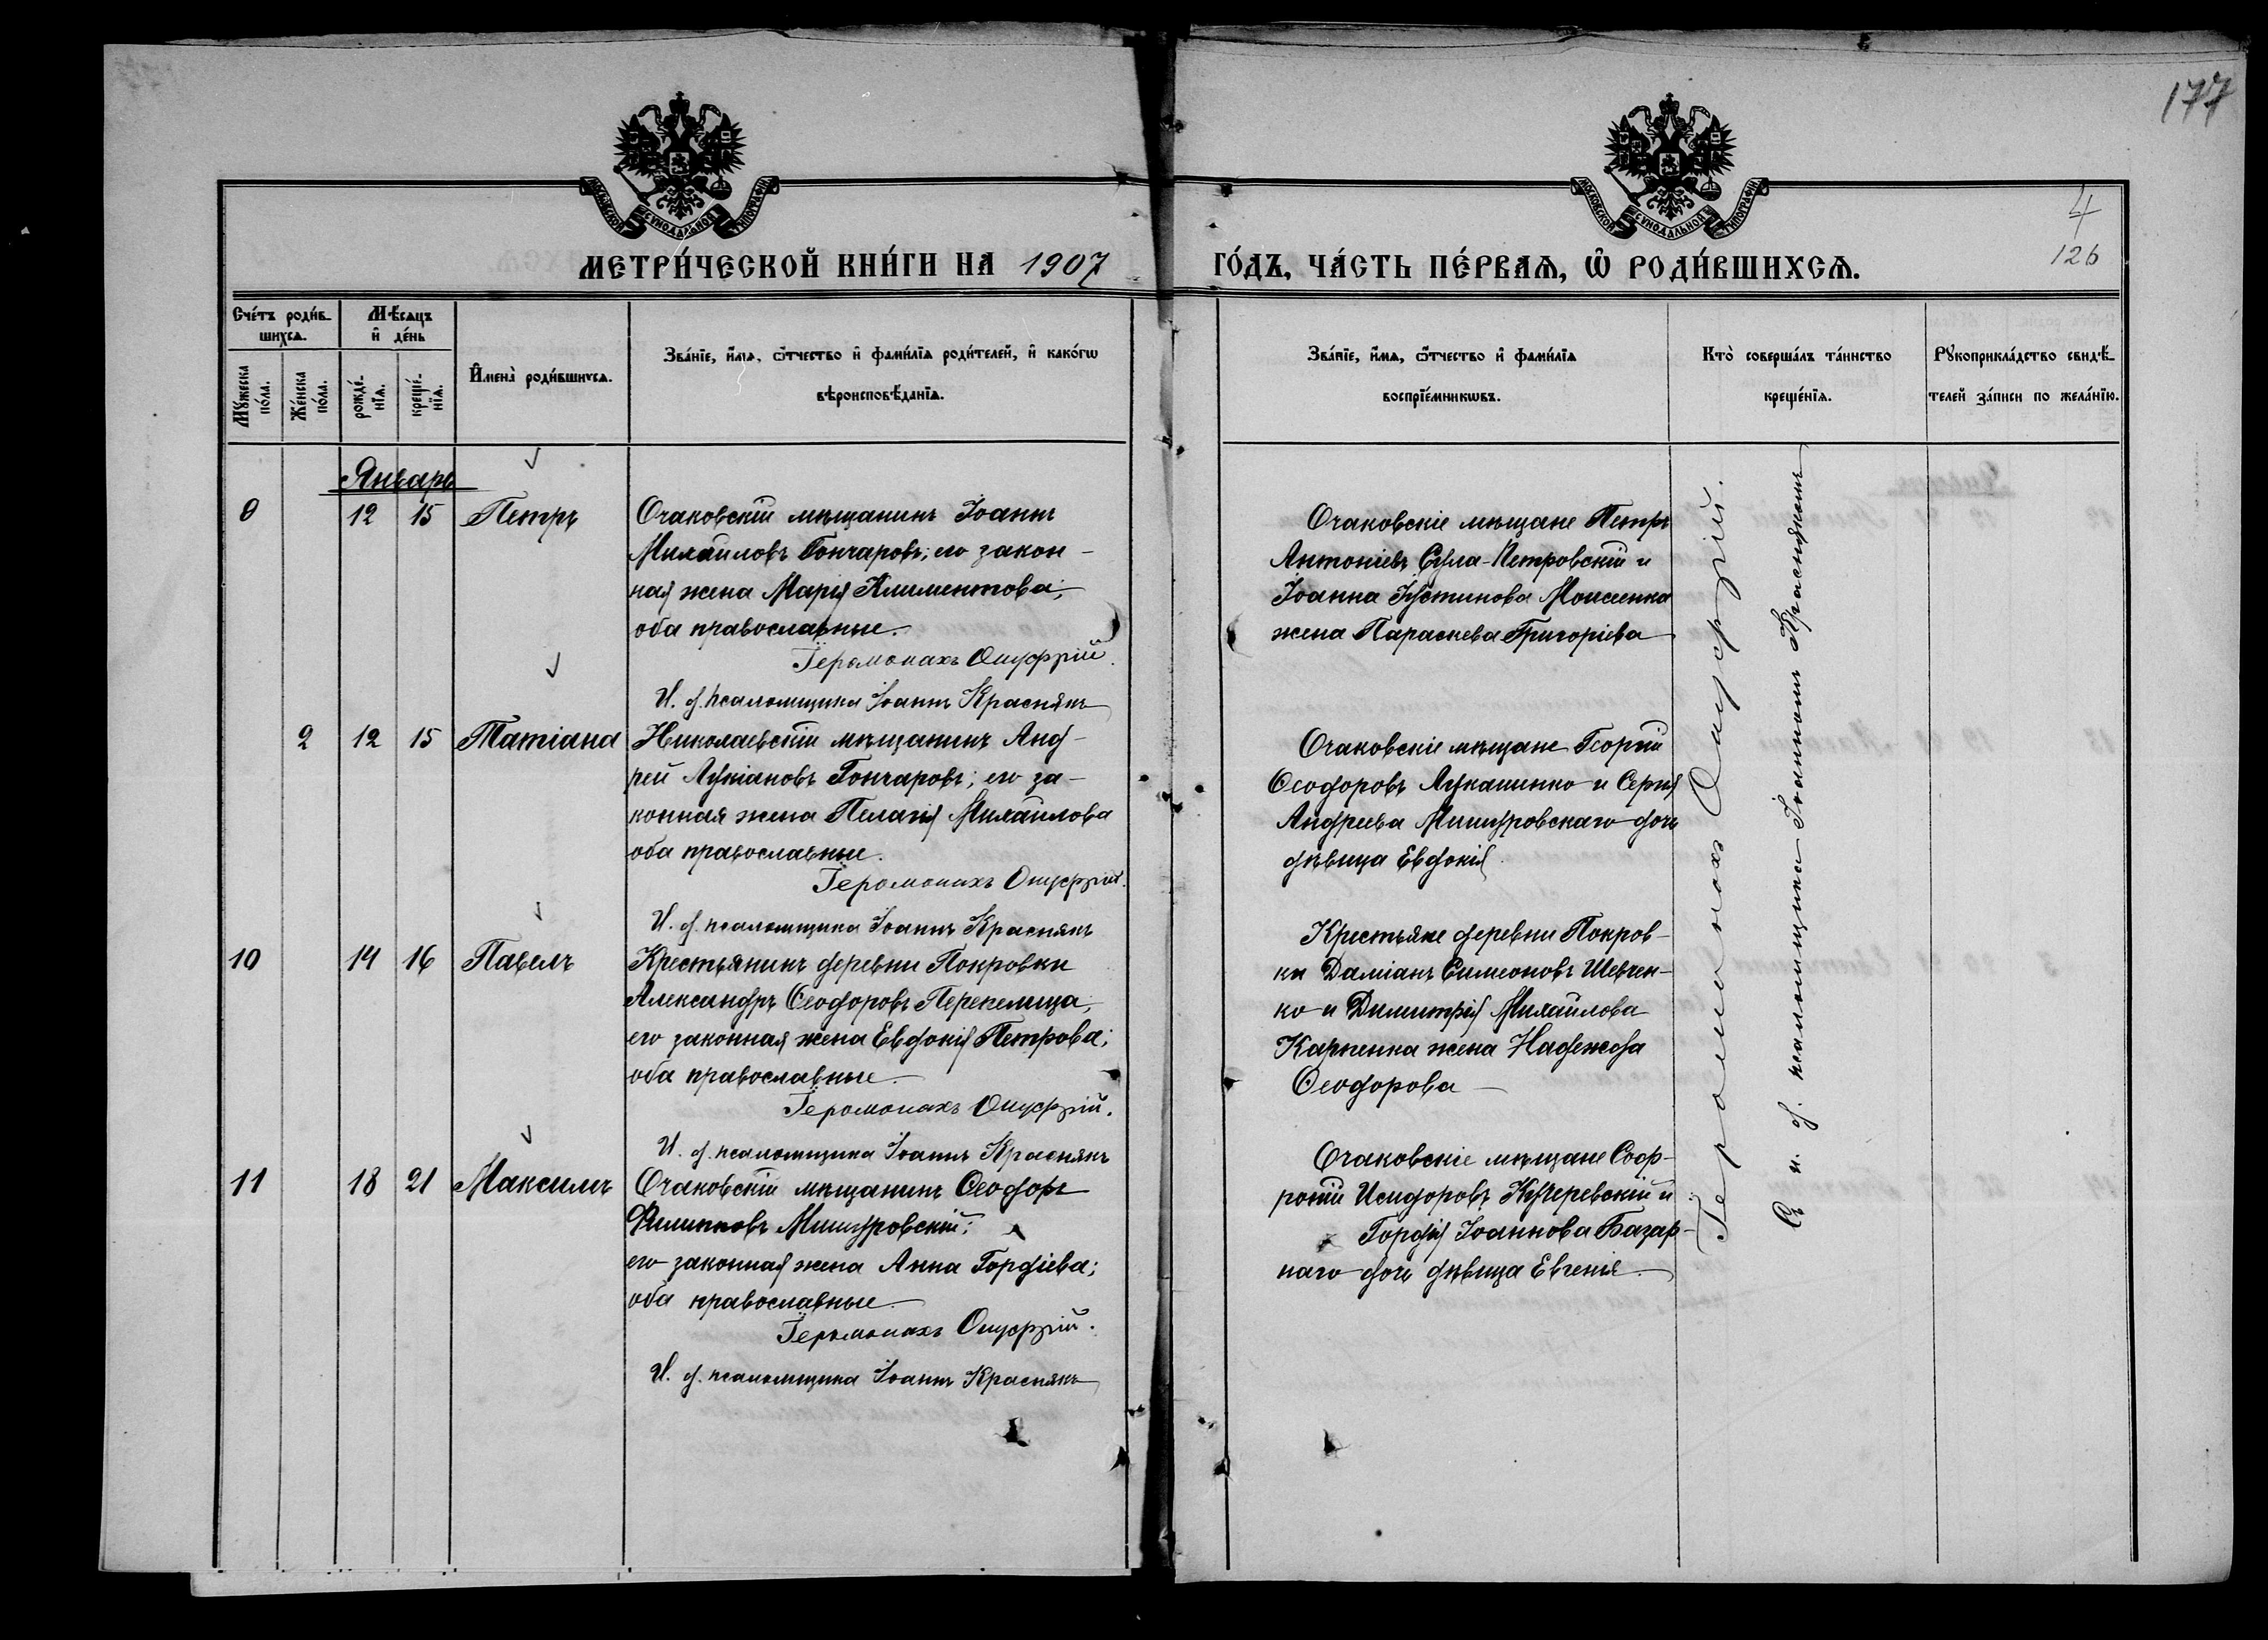 177
4
126
МОСКОВСКОЙ СУНОДАЛЬНОЙ ТИПОГРАФІИ
МОСКОВСКОЙ СУНОДАЛЬНОЙ ТИПОГРАФІИ
МЕТРИ́ЧЕСКОЙ КНИ́ГИ НА 1907
ГО́ДЪ, ЧА́СТЬ ПЕ́РВАѦ, Ѡ҆ РОДИ́ВШИХСѦ.
Сче́тъ роди́в-
шихсѧ.
Мꙋжеска по́ла.
Же́нска по́ла.
Мѣсѧцъ
и҆ де́нь
рожде́-
нїѧ.
креще́-
нїѧ.
И҆мена̀ роди́вшихсѧ.
Зва́нїе, и҆́мѧ, ѻ҆́тчество и҆ фами́лїѧ роди́телей, и҆ како́гѡ
вѣроисповѣ́данїѧ.
Зва́нїе, и҆́мѧ, ѻ҆́тчество и҆ фами́лїѧ
воспрїе́мникѡвъ.
Кто̀ соверша́лъ та́инство
креще́нїѧ.
Рꙋкоприкла́дство свидѣ́-
телей за́писи по жела́нїю.
Январь
9 12 15 Петръ
Очаковскій мѣщанинъ Іоаннъ
Михайловъ Гончаровъ; его закон-
ная жена Марія Климентова;
оба православные.
Іеромонахъ Онуфрій.
И. д. псаломщика Іоаннъ Краснякъ
Очаковскіе мѣщане Петръ
Антоніевъ Сула-Петровскій и
Іоанна Іустинова Моисеенка
жена Параскева Григоріева
2 12 15 Татіана
Николаевскій мѣщанинъ Анд-
рей Лукіановъ Гончаровъ; его за-
конная жена Пелагія Михайлова
оба православные.
Іеромонахъ Онуфрій.
И. д. псаломщика Іоаннъ Краснякъ
Очаковскіе мѣщане Георгій
Ѳеодоровъ Лукашенко и Сергія
Андреева Мишуровскаго дочь
дѣвица Евдокія.
10 14 16 Павелъ
Крестьянинъ деревни Покровки
Александръ Ѳеодоровъ Перепелица,
его законная жена Евдокія Петрова;
оба православные.
Іеромонахъ Онуфрій.
И. д. псаломщика Іоаннъ Краснякъ
Крестьяне деревни Покров-
ки Даміанъ Симеоновъ Шевчен-
ко и Димитрія Михайлова
Карпенка жена Надежда
Ѳеодорова
11 18 21 Максимъ
Очаковскій мѣщанинъ Ѳеодоръ
Филипповъ Мишуровскій;
его законная жена Анна Гордіева;
оба православные.
Іеромонахъ Онуфрій.
И. д. псаломщика Іоаннъ Краснякъ
Очаковскіе мѣщане Соф-
роній Исидоровъ Кучеревскій и
Гордія Іоаннова Базар-
наго дочь дѣвица Евгенія
Іеромонахъ Онуфрій.
Съ и. д. псаломщика Іоанномъ Краснякомъ